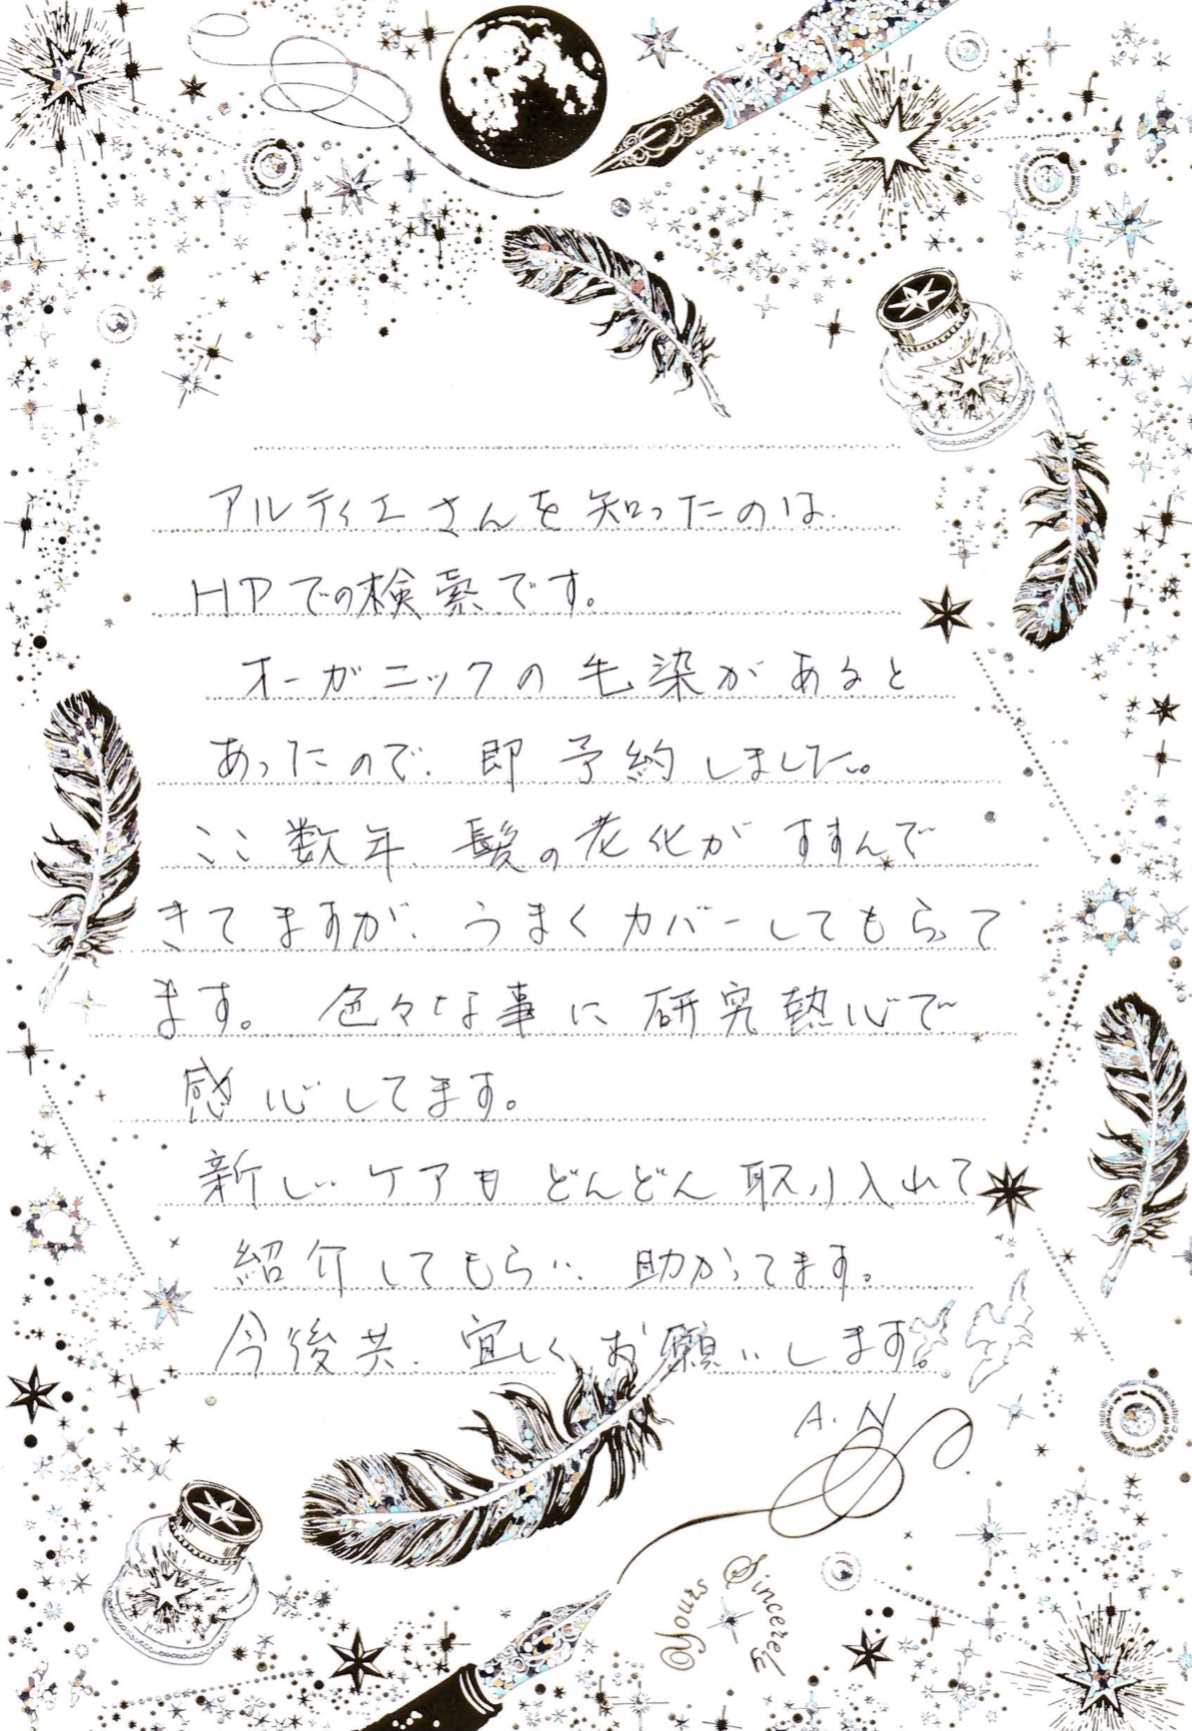 アルティエさんを知ったのは、
HPでの検索です。
オーガニックの毛染があると
あったので、即予約しました。
ここ数年、髪の老化がすすんで
きてますが、うまくカバーしてもらって
ます。色々な事に研究熱心で
感心してます。
新しいケアもどんどん取り入れて
紹介してもらい、助かってます。
今後共、宜しくお願いします。
A.N
Yours Sincerely